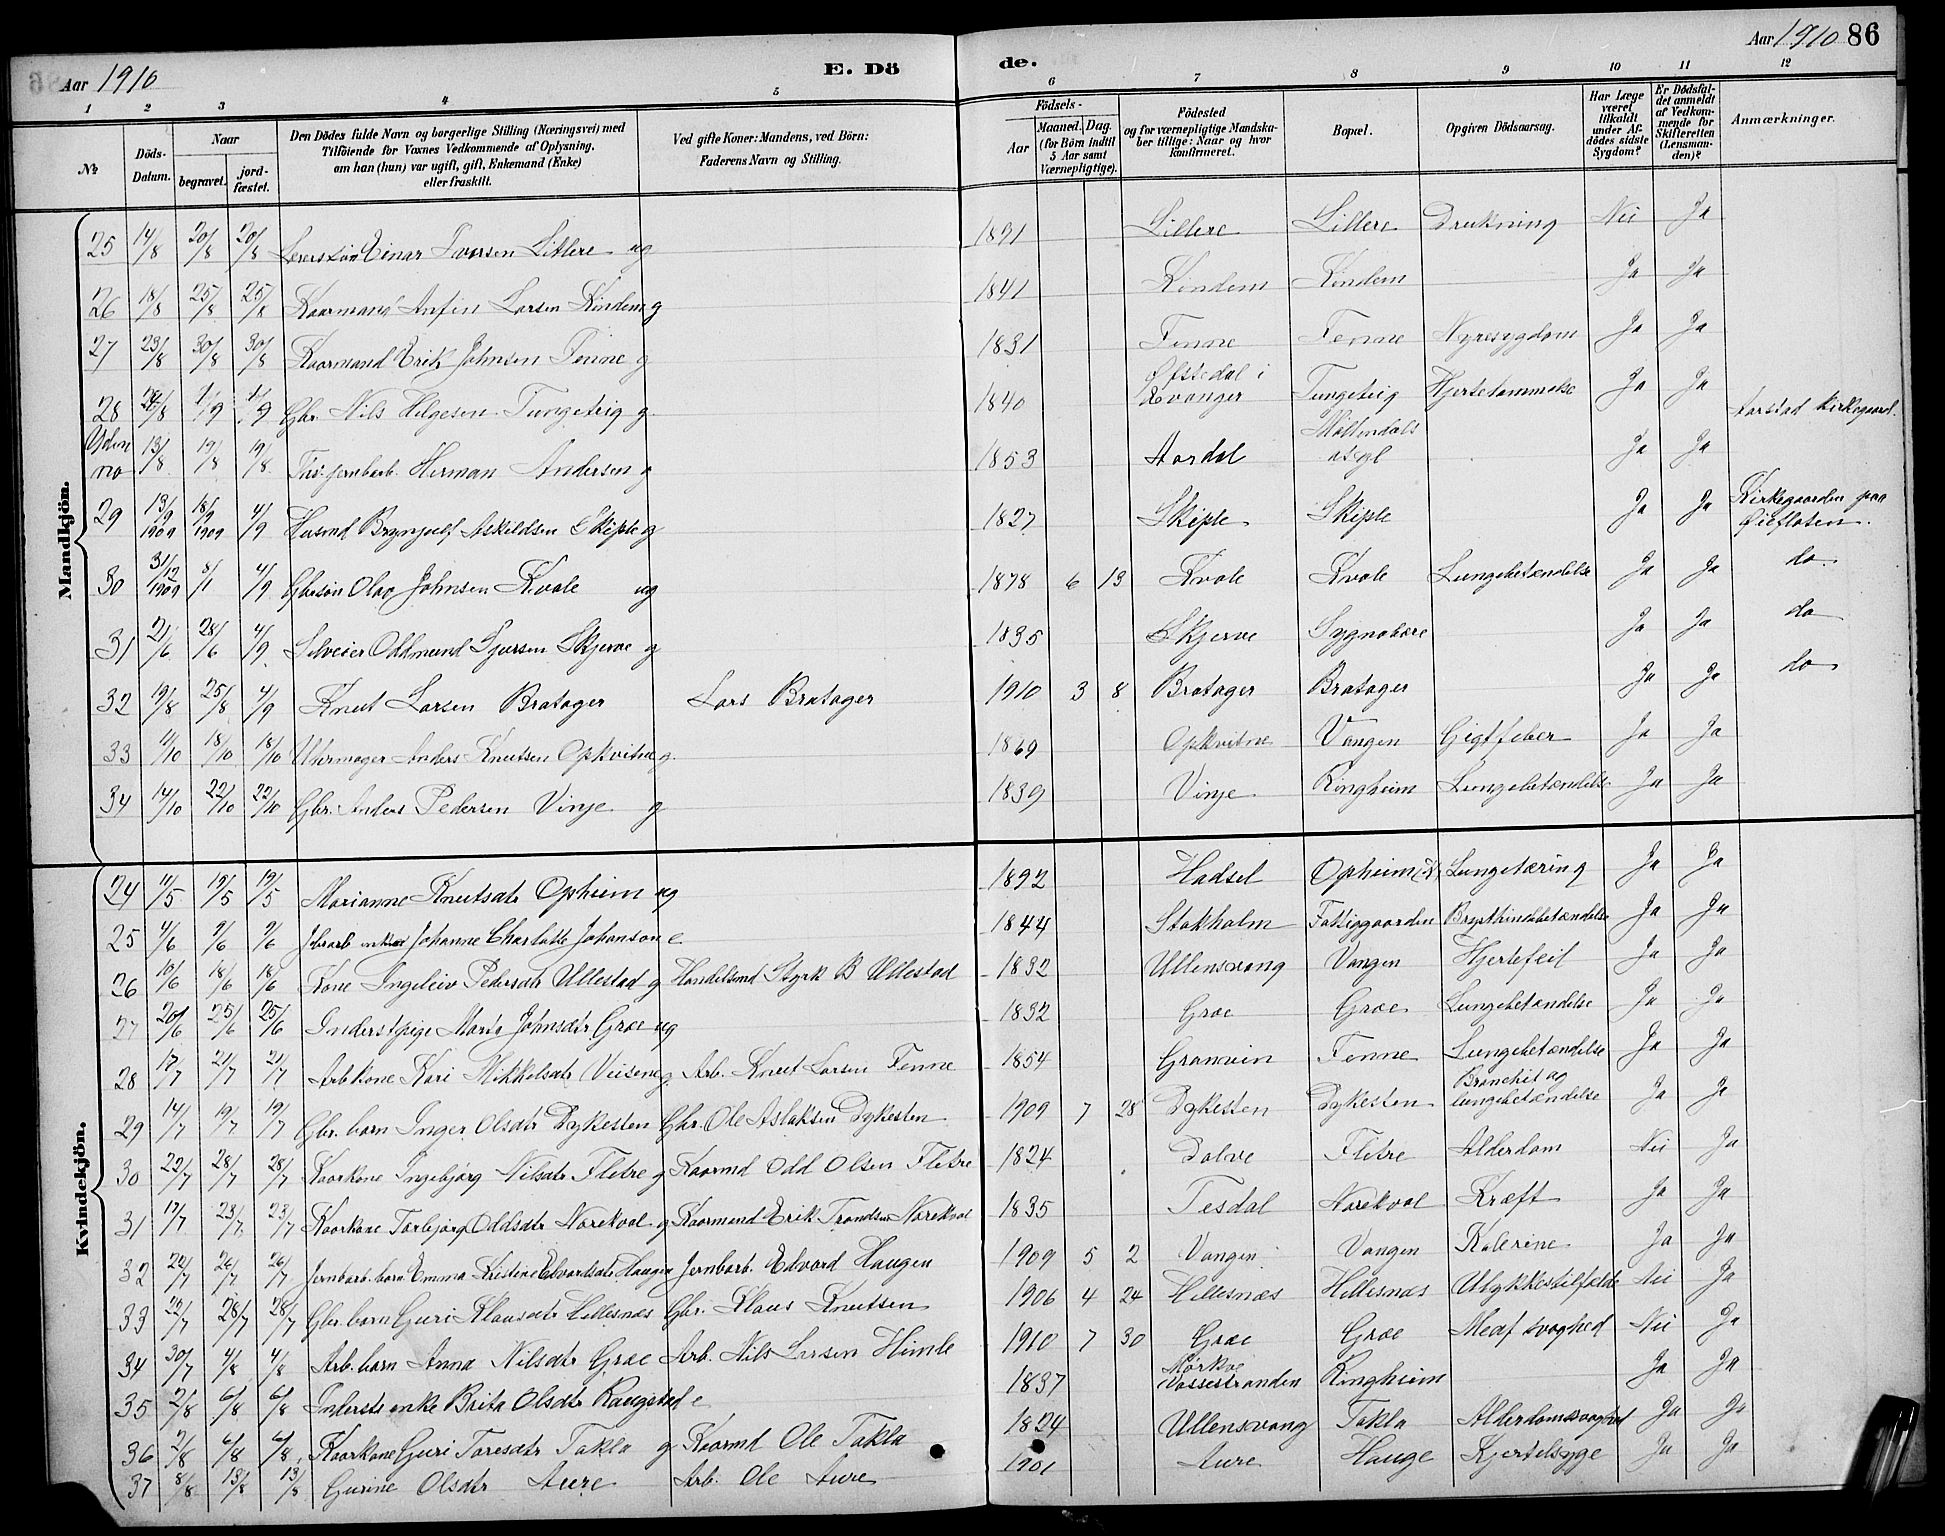 Aar 1910
E. Dö
de.
Aar 1910 86
1 2 3 4 5 6 7 8 9 10 11 12
№
Döds-Datum.
Naar
begravet.
jord-fæstet.
Den Dödes fulde Navn og borgerlige Stilling (Næringsvei) med
Tilföiende for Voxnes Vedkommende af Oplysning,
om han (hun) var ugift, gift, Enkemand (Enke)
eller fraskilt.
Ved gifte Koner: Mandens, ved Börn:
Faderens Navn og Stilling.
Födsels-
Aar
Maaned. Dag.
(for Börn indtil
5 Aar samt
Værnepligtige).
Födested
og for værnepligtige Mandska-
ber tillige: Naar og hvor
konfirmeret.
Bopæl.
Opgiven Dödsaarsag.
Har Læge
været
tilkaldt
under Af-
dödes sidste
Sygdom?
Er Dödsfal-
det anmeldt
af Vedkom-
mende for
Skifteretten
(Lensman-
den)?
Anmærkninger.
Mandkjön.
25 14/8 20/8 20/8 Einar Iversen Lillere ug 1891 Lillere Lillere Drukning Nei Ja
26 18/8 25/8 25/8 Kaarmand Anfin Larsen Kindem g 1841 Kindem Kindem Ja Ja
27 23/8 30/8 30/8 Kaarmand Erik Johnsen Fenne g 1831 Fenne Fenne Nyresygdom Ja Ja
28 24/8 1/9 1/9 Gbr. Nils Helgesen Tungeteig g 1840 Øfstedal i Evanger Tungeteig Hjertelammelse Ja Ja
Uden no 13/8 19/8 19/8 jernbarb. Herman Andersen g 1853 Aardal Møllendals Ja Ja Aarstad Kirkegaard.
29 13/9 1909 18/9 1909 4/9 Husmd Brynjulf Askildsen Skiple g 1827 Skiple Skiple Ja Ja Kirkegaarden paa Øieflaten.
30 31/12 1909 8/1 4/9 Gbrsøn Olav Johnsen Kvale ug 1878 6 13 Kvale Kvale Lungebetændelse Ja Ja do
31 21/6 28/6 4/9 Selveier Oddmund Sjursen Skjerve g 1835 Skjerve Sygnabære Ja Ja do
32 19/8 25/8 4/9 Knut Larsen Bratager Lars Bratager 1910 3 8 Bratager Bratager Ja Ja do
33 11/10 18/10 18/10 Uhrmager Anders Knutsen Opkvitne g 1869 Opkvitne Vangen Gigtfeber Ja Ja
34 14/10 22/10 22/10 Gbr. Anders Pedersen Vinje g 1839 Vinje Ringheim Lungebetændelse Ja Ja
Kvindekjön.
24 11/5 19/5 19/5 Marianne Knutsdtr Opheim ug 1892 Hadsel Opheim Lungetæring Ja Ja
25 4/6 9/6 9/6 Johanne Charlotte Johanson e 1844 Stokholm Fattiggaarden Brysthindebetændelse Ja Ja
26 10/6 18/6 18/6 Kone Ingeleiv Pedersdtr Ullestad g Handelsmd Styrk B Ullestad 1832 Ullensvang Vangen Hjertefeil Ja Ja
27 20/6 25/6 25/6 Inderstpige Marta Johnsdtr Græe ug 1832 Græe Græe Lungebetændelse Ja Ja
28 17/7 21/7 21/7 Arb kone Kari Mikkelsdtr g Arb. Knut Larsen Fenne 1854 Granvin Fenne Lungebetændelse Ja Ja
29 14/7 19/7 19/7 Gbr. barn Inger Olsdtr Dykesten Gbr. Ole Aslaksen Dykesten 1909 7 28 Dykesten Dykesten Bronchit og lungebetændelse Ja Ja
30 22/7 28/7 28/7 Kaarkone Ingebjørg Nilsdtr Flitre g Kaarmd Odd Olsen Flitre 1824 Dolve Flitre Alderdom Nei Ja
31 17/7 23/7 23/7 Kaarkone Torbjørg Oddsdtr Norekval g Kaarmand Erik Trondsen Norekval 1835 Tesdal Norekval Kræft Ja Ja
32 22/7 26/7 26/7 Jernbarb. barn Emma Kristine Edvardsdtr Haugen Jernbarb. Edvard Haugen 1909 5 2 Vangen Vangen Kolerine Ja Ja
33 22/7 28/7 28/7 Gbr. barn Guri Klausdtr Hellesnæs Gbr. Klaus Knutsen 1906 4 24 Hellesnæs Hellesnæs Ulykkestilfælde Nei Ja
34 30/7 4/8 4/8 Arb. barn Anna Nilsdtr Græe Arb. Nils Larsen Himle 1910 7 30 Græe Græe Medf svaghed Nei Ja
35 2/8 6/8 6/8 Inderste enke Brita Olsdtr Raugstad e 1837 Mørkve Vossestranden Ringheim Ja Ja
36 2/8 6/8 6/8 Kaarkone Guri Taresdtr Takla g Kaarmd Ole Takla 1824 Ullensvang Takla Alderdomssvaghed Ja Ja
37 8/8 13/8 13/8 Gurine Olsdtr Aure Arb. Ole Aure 1901 Aure Hauge Kjertelsyge Ja Ja